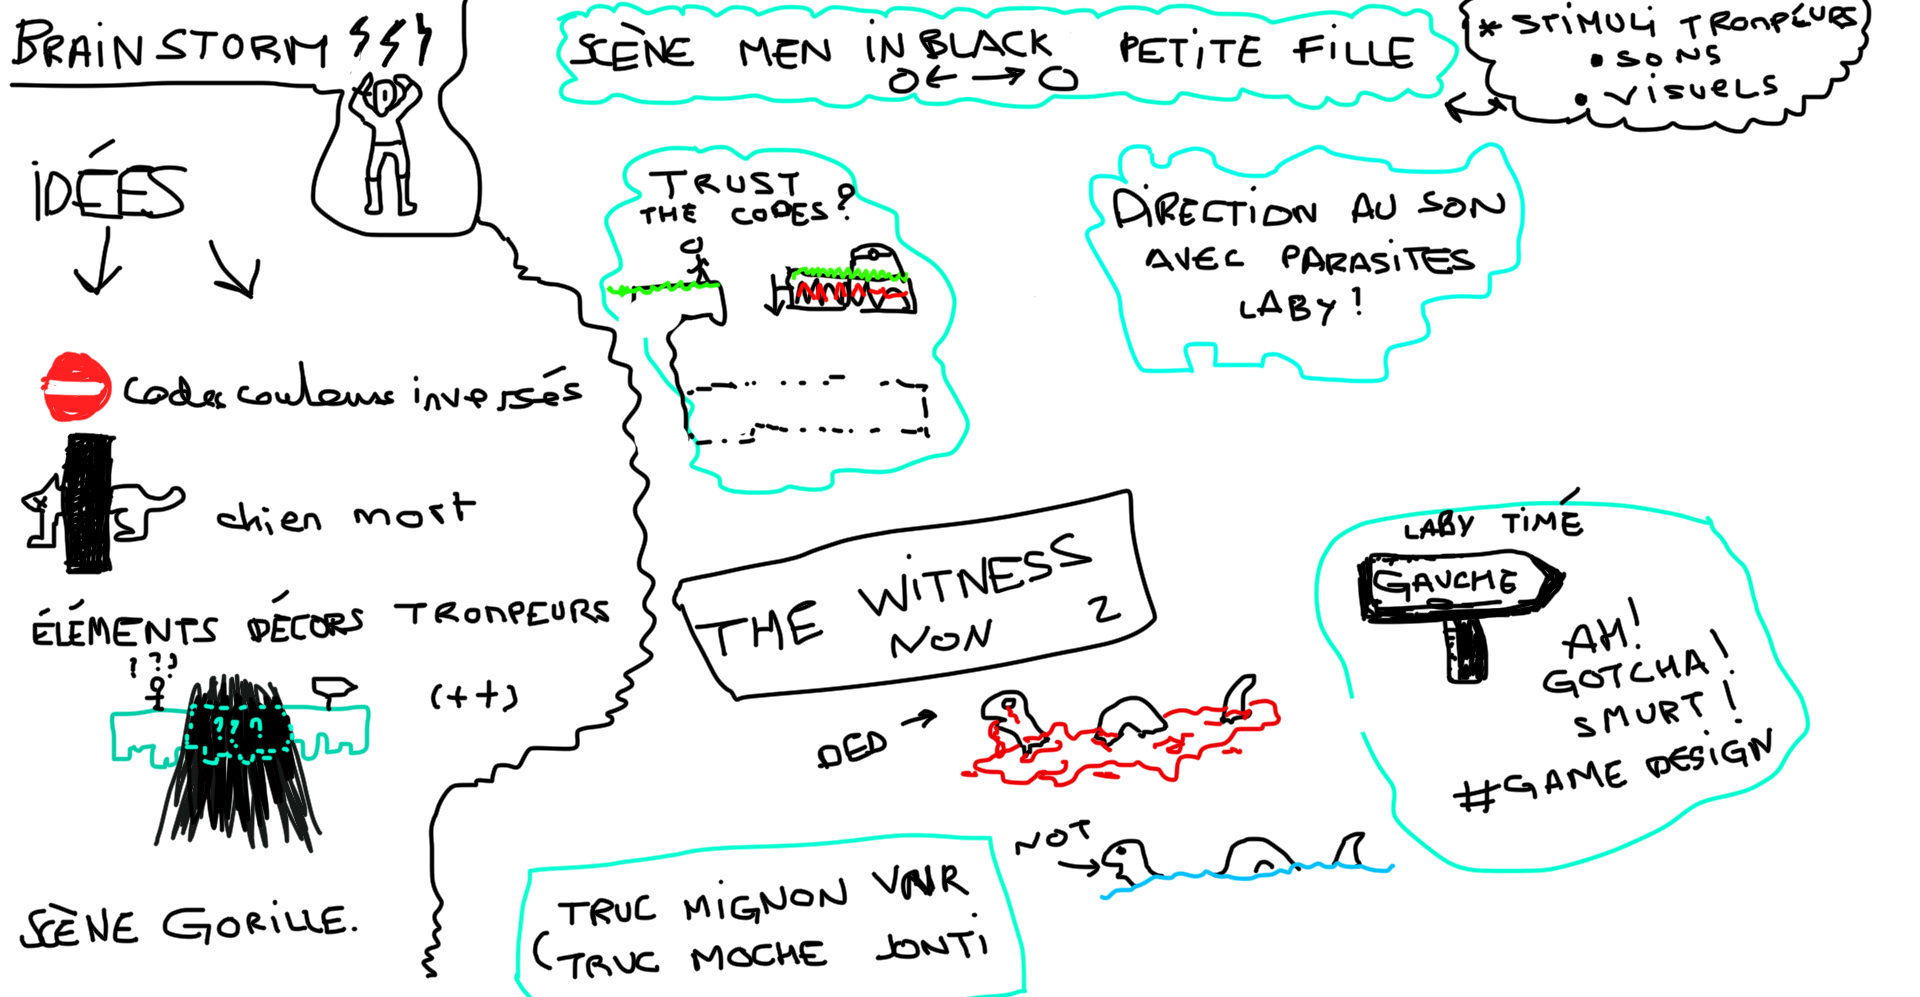 BRAINSTORM
IDÉES
codes couleurs inversés
chien mort
ÉLÉMENTS DÉCORS TROMPEURS
? ? ?
(++)
? ? ?
SCÈNE GORILLE.
SCÈNE MEN IN BLACK PETITE FILLE
* STIMULI TROMPEURS
• SONS
• VISUELS
TRUST
THE CODES?
DIRECTION AU SON
AVEC PARASITES
LABY!
THE WITNESS
NON 2
DED
NOT
LABY TIMÉ
GAUCHE
AH!
GOTCHA!
SMURT!
#GAME DESIGN
TRUC MIGNON
TRUC MOCHE JONTI